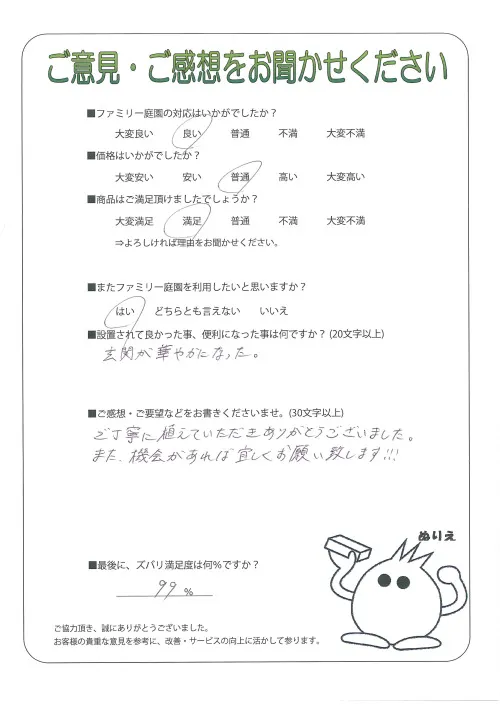 ご意見・ご感想をお聞かせください
■ファミリー庭園の対応はいかがでしたか？
大変良い 良い 普通 不満 大変不満
■価格はいかがでしたか？
大変安い 安い 普通 高い 大変高い
■商品はご満足頂けましたでしょうか？
大変満足 満足 普通 不満 大変不満
⇒よろしければ理由をお聞かせください。
■またファミリー庭園を利用したいと思いますか？
はい どちらとも言えない いいえ
■設置されて良かった事、便利になった事は何ですか？(20文字以上)
玄関が華やかになった。
■ご感想・ご要望などをお書きくださいませ。(30文字以上)
ご丁寧に植えていただきありがとうございました。
また、機会があれば宜しくお願い致します!!!
ぬりえ
■最後に、ズバリ満足度は何％ですか？
99 %
ご協力頂き、誠にありがとうございました。
お客様の貴重な意見を参考に、改善・サービスの向上に活かして参ります。